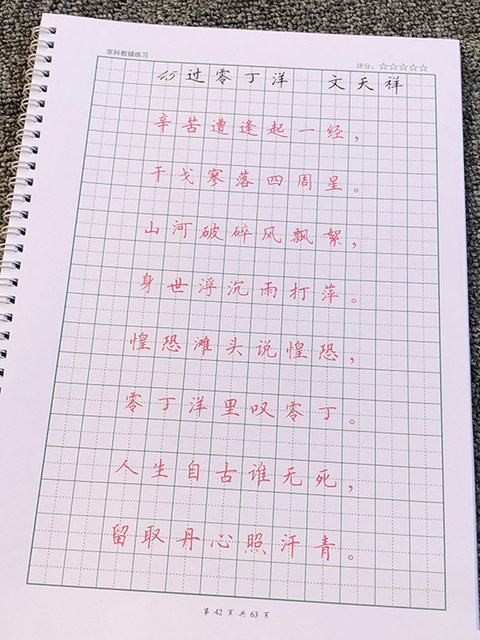 京科教辅练习
评分：☆☆☆☆☆
45 过零丁洋 文天祥
辛苦遭逢起一经，
干戈寥落四周星。
山河破碎风飘絮，
身世浮沉雨打萍。
惶恐滩头说惶恐，
零丁洋里叹零丁。
人生自古谁无死，
留取丹心照汗青。
第 42 页 共 63 页